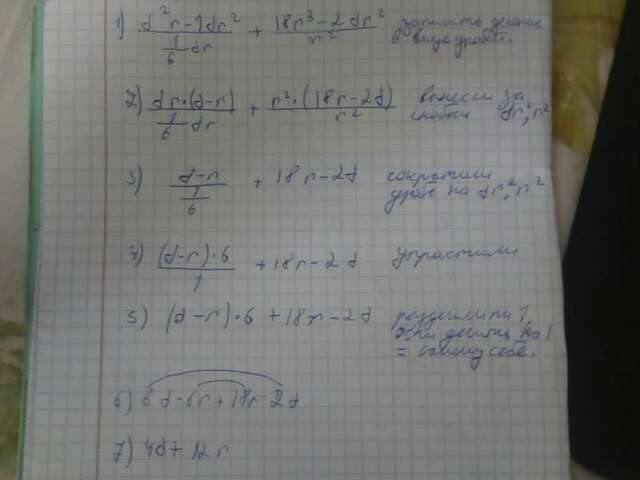 1) (d²r - 1dr²)/(1/6 dr) + (18r³ - 2dr²)/r² записать деление
в виде дроби.
2) (dr·(d-r))/(1/6 dr) + (r²·(18r-2d))/r² вынесли за
скобки dr, r²
3) (d-r)/(1/6) + 18r - 2d сократили
дробь на dr, r²
4) ((d-r)·6)/1 + 18r - 2d упрастили
5) (d-r)·6 + 18r - 2d разделили на 1,
делить на 1
= самому себе.
6) 6d - 6r + 18r - 2d
7) 4d + 12r